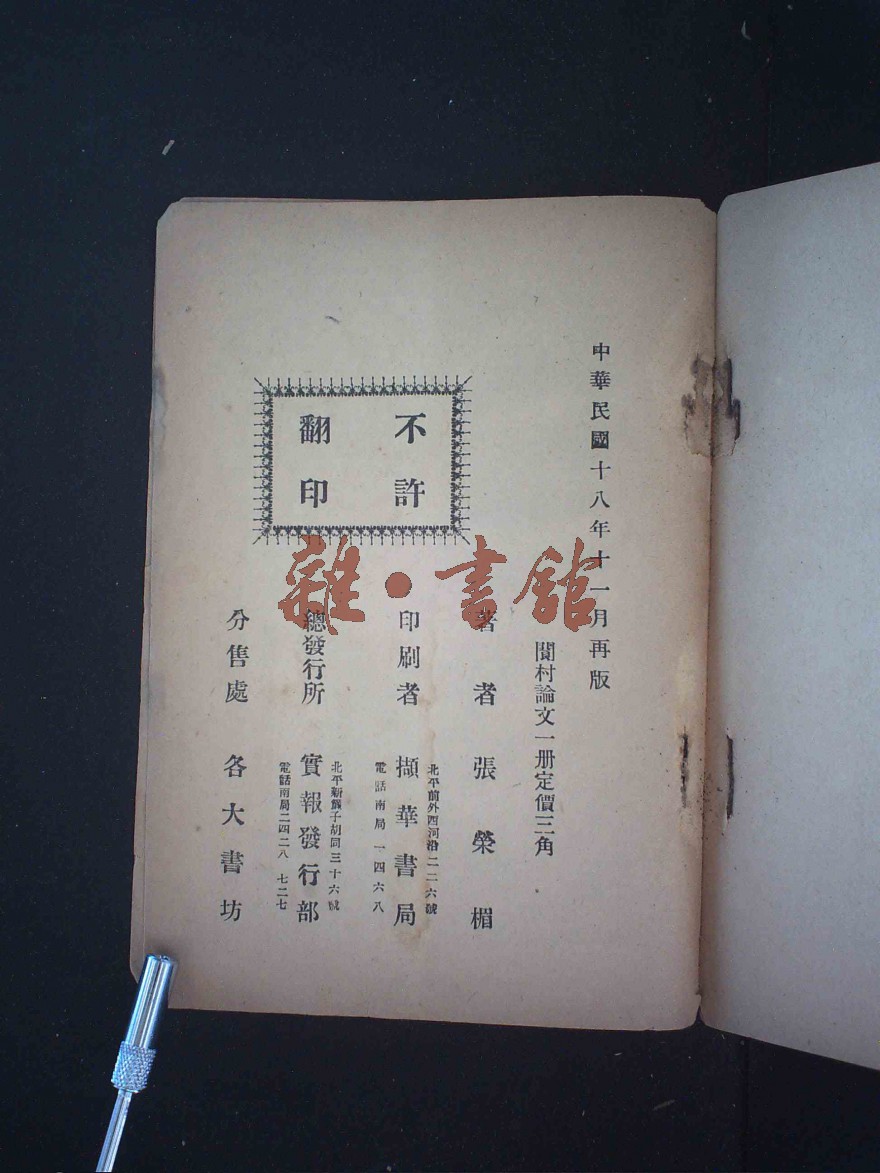 中華民國十八年十一月再版
閬村論文一册定價三角
不許
翻印
著者 張榮楣
印刷者 擷華書局
北平前外西河沿二二六號
電話南局一四六八
總發行所 實報發行部
北平新簾子胡同三十六號
電話南局二四二八 七二七
分售處 各大書坊
雜·書館